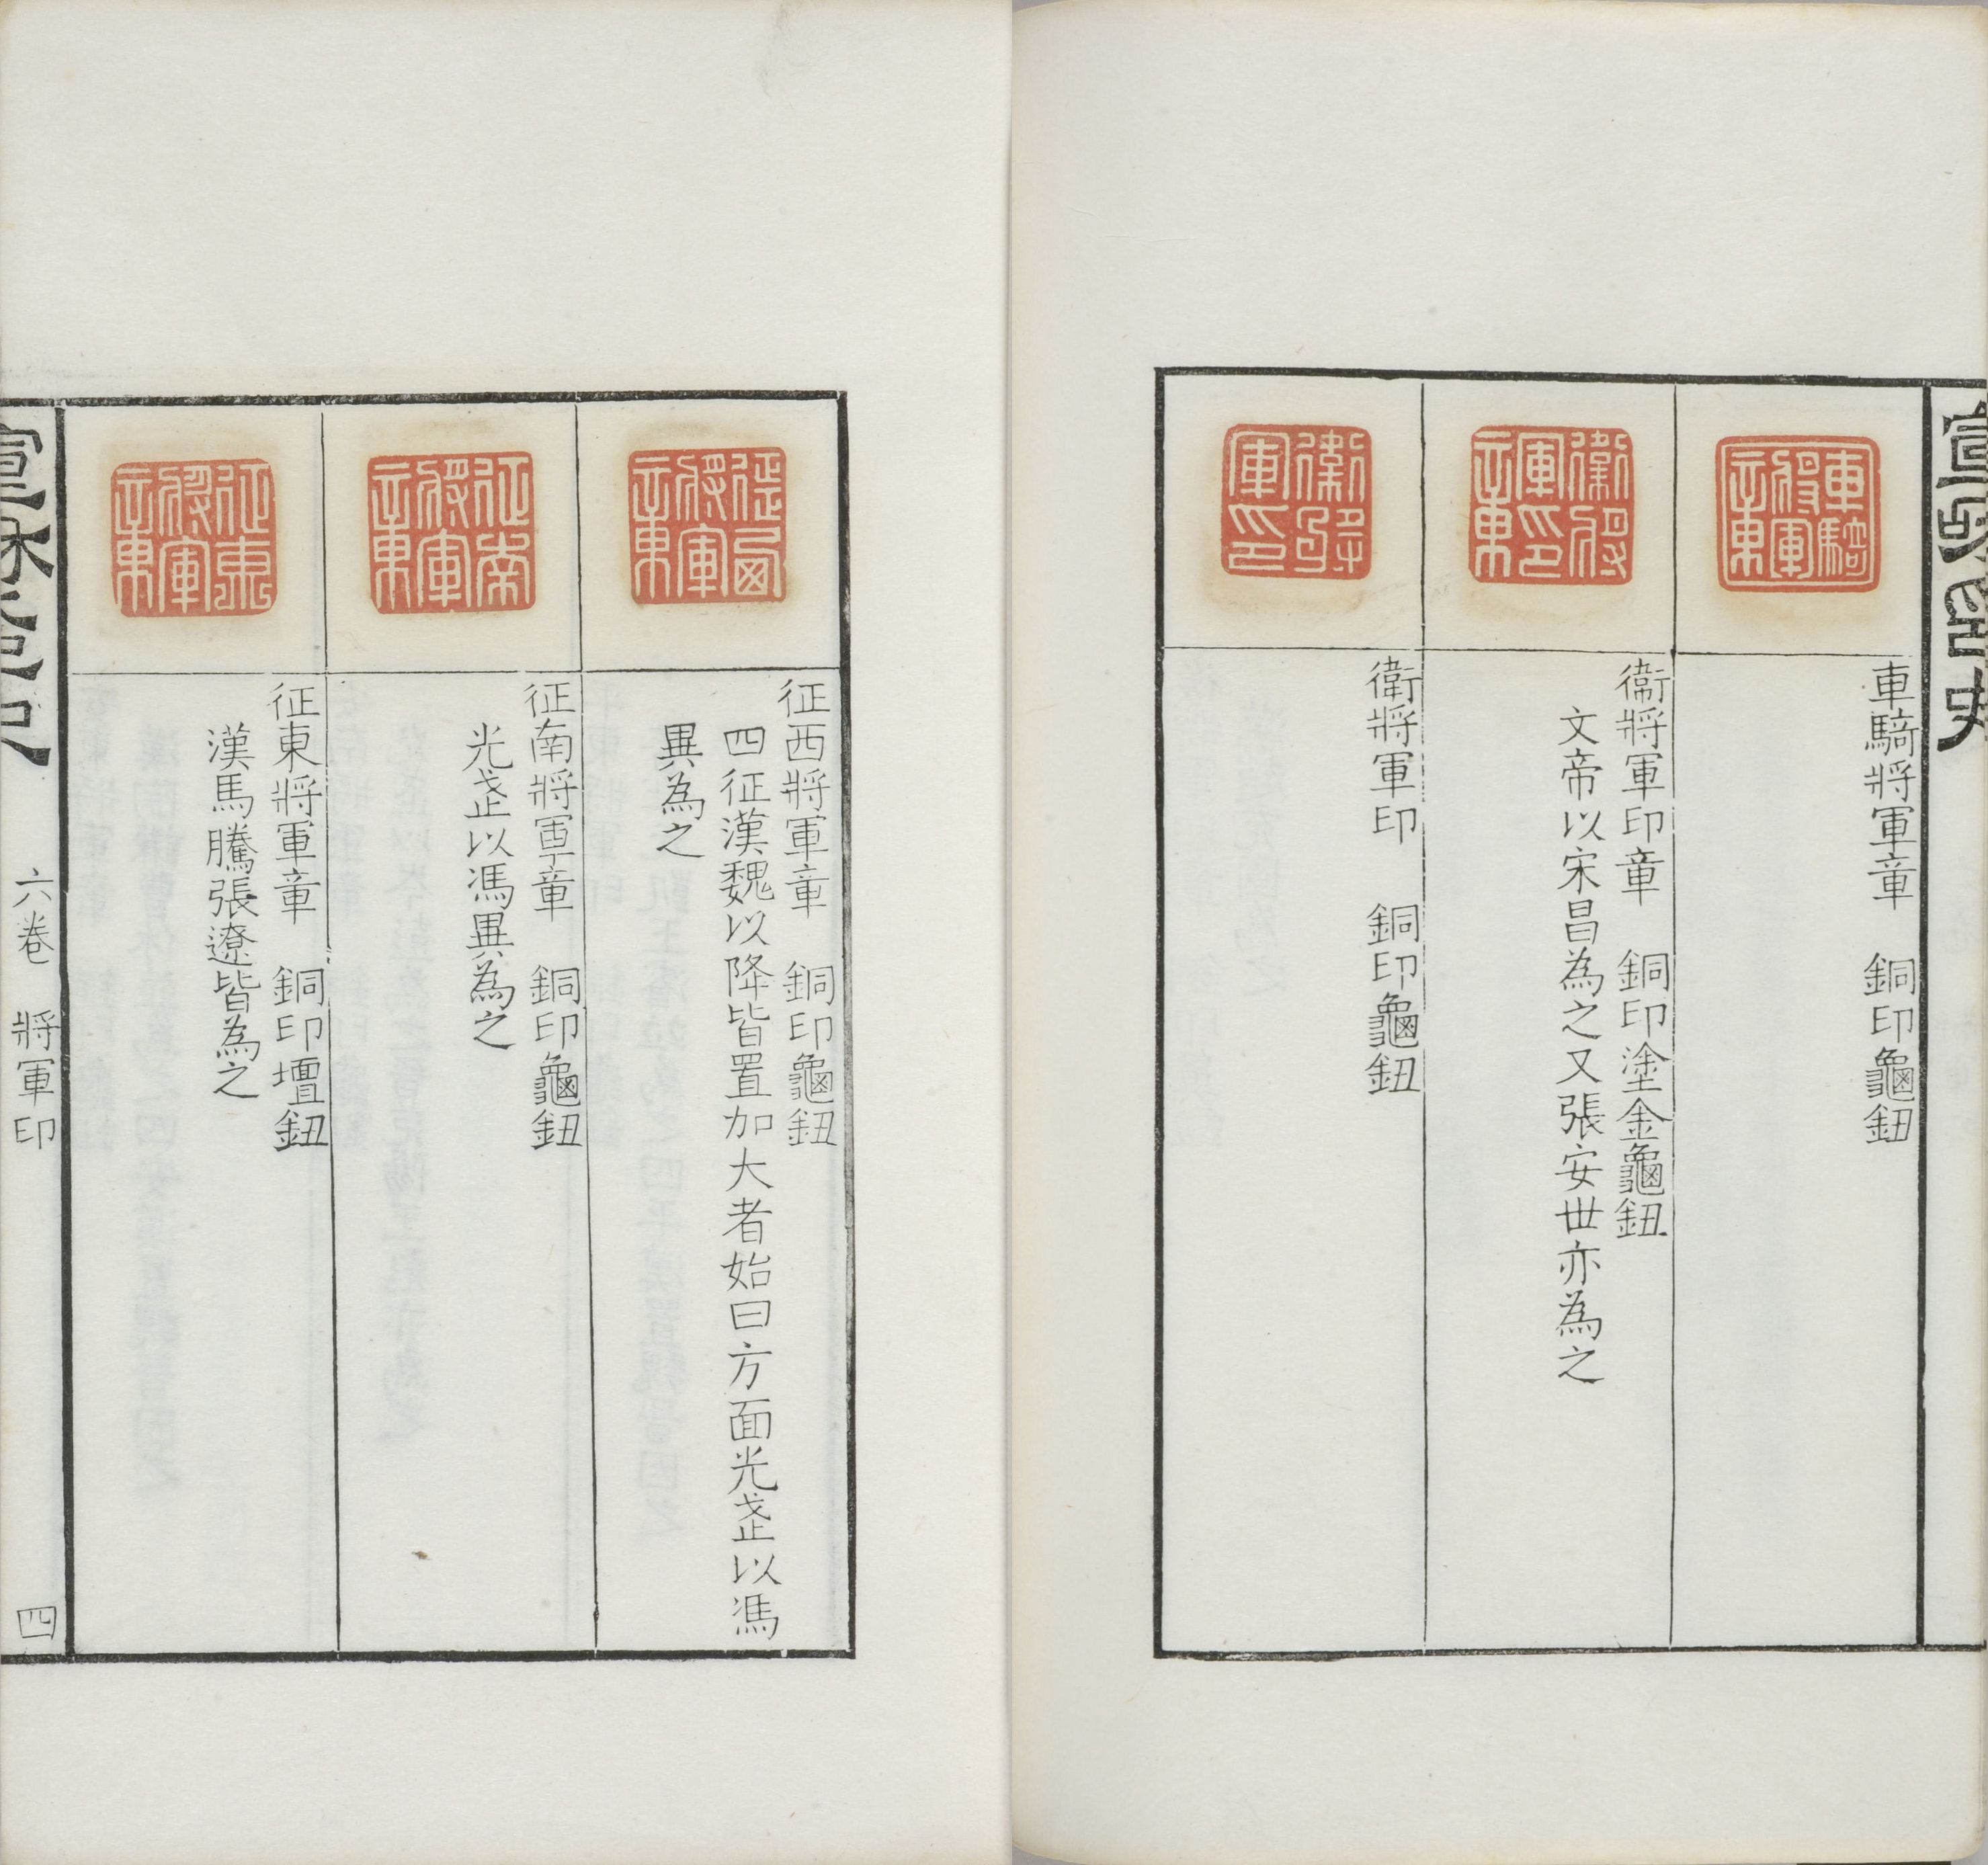 宣和印史
車騎將軍章
車騎將軍章　銅印龜鈕
衛將軍印章
衛將軍印章　銅印塗金龜鈕
文帝以宋昌為之又張安世亦為之
衛將軍印
衛將軍印　銅印龜鈕
征西將軍章
征西將軍章　銅印龜鈕
四征漢魏以降皆置加大者始曰方面光武以馮
異為之
征南將軍章
征南將軍章　銅印龜鈕
光武以馮異為之
征東將軍章
征東將軍章　銅印壇鈕
漢馬騰張遼皆為之
宣和印史
六卷　將軍印
四